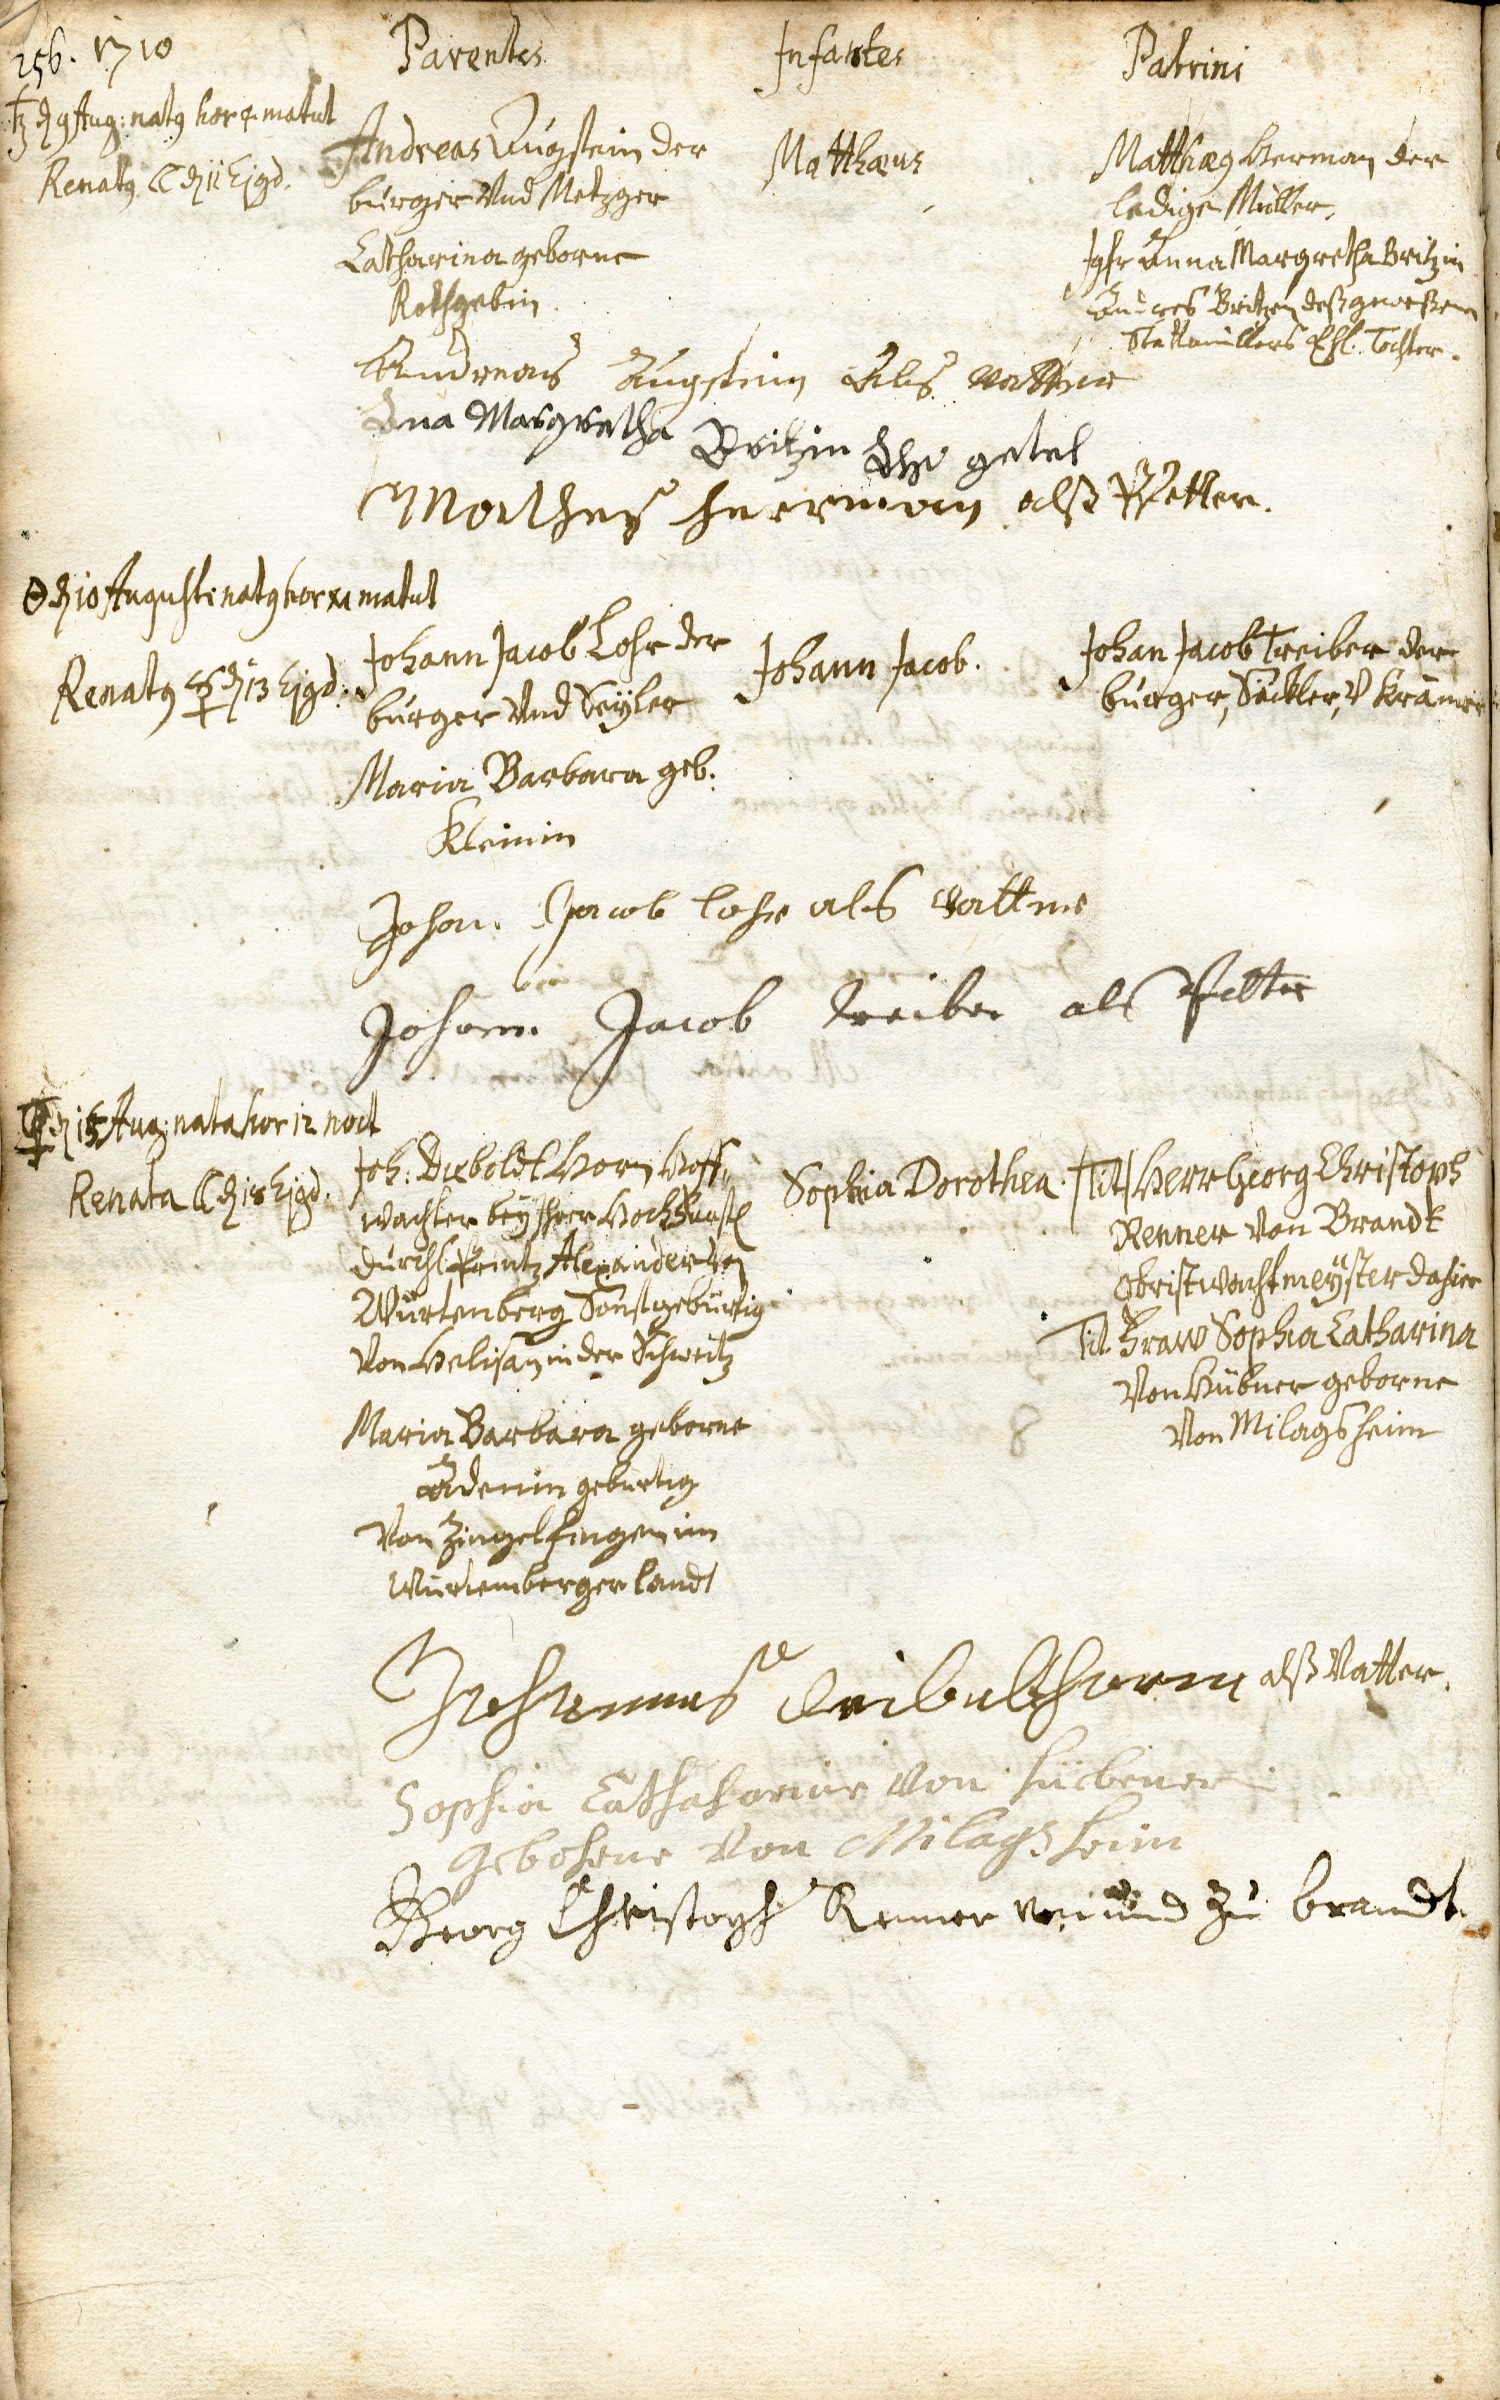 256. 1710
Parentes
Infantes
Patrini
♄ d 9 Aug: natq hor 4 matut
Renatq ☾ d 11 Ejqd.
Andreas Augstein der
burger Und Metzger
Catharina geborne
Rothgebin
Matthæus
Matthæq Herman der
ledige Müller,
Jgfr Anna Margretha Britzin
Andres Britzen deß gewesenen
Stattmüllers Ehl. Tochter.
Andreas Augstein Als vatter
Ana Margretha Britzin Als getel
Mathes Herrman alß Pfetter.
☉ d 10 Augusti natq hor xi matut
Renatq ☿ d 13 Ejqd:
Johann Jacob Lohr der
burger Und Seÿler
Maria Barbara geb.
Kleinin
Johann Jacob.
Johan Jacob Treiber der
burger, Säckler, V Krämer
Johan. Jacob lohr als vatter
Johann Jacob treiber als Pfetter
d 15 Aug: nata hor 12 noct
Renata ☾ d 18 Ejqd.
Joh: Dieboldt Horn Hoff,,
wachter beÿ Ihrer Hochfürstl
Durchl Printz Alexander von
Würtenberg Sonst gebürtig
Von Helisau in der Schweitz
Maria Barbara geborne
gebürtig
Von Zingelfingen im
Würtemberger landt
Sophia Dorothea
/Tit/ Herr Georg Christoph
Renner Von Brandt
Obristwachtmeÿster dahier
Tit. Fraw Sophia Catharina
Von Hübner geborne
Von Milagsheim
Johannes Deibelt horn alß Vatter.
Sophia Cathaharina Von Hübener
Gebohrne Von Milagsheim
Georg Christoph Renner von und zu brandt.